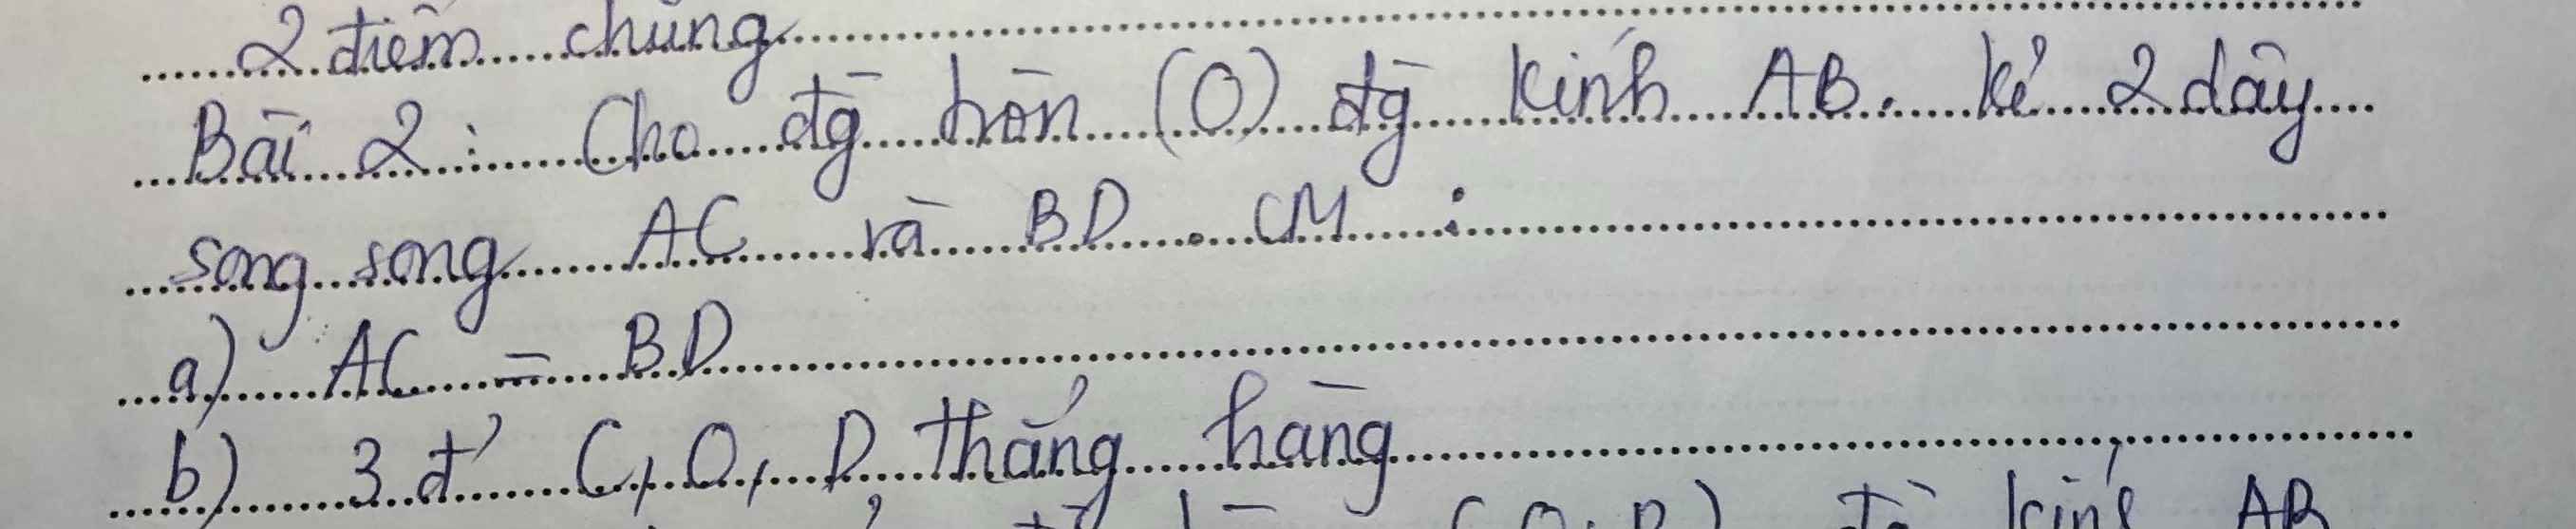 2 điểm chung
Bài 2: Cho đg tròn (O) đg kính AB. kẻ 2 dây
song song AC và BD. CM:
a) AC = BD
b) 3 đ' C, O, D thẳng hàng
kính AB